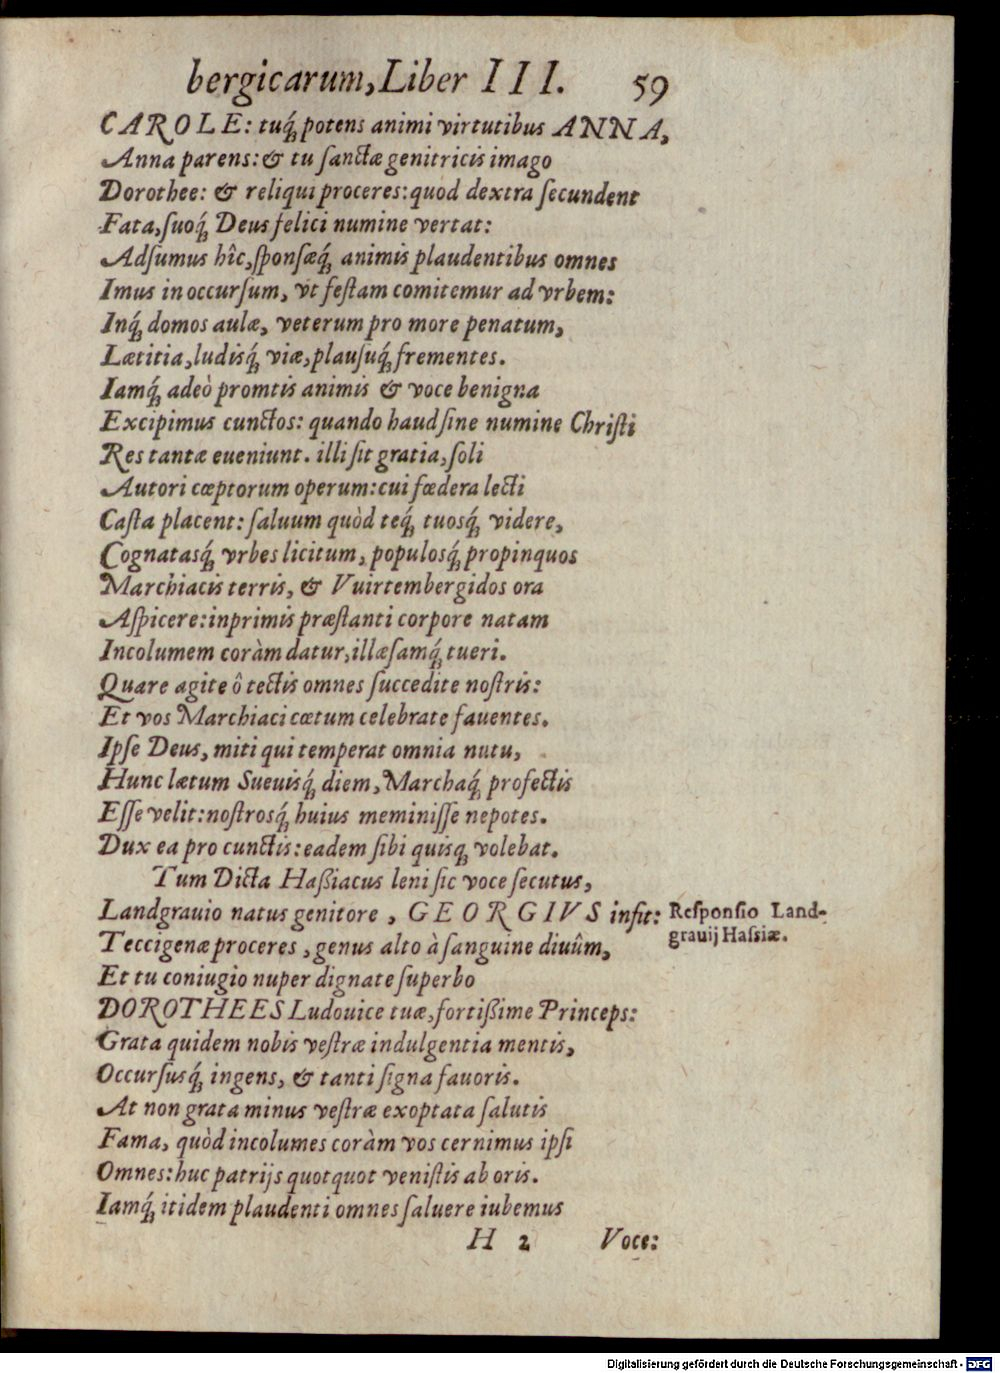 bergicarum, Liber III. 59
CAROLE: tuq́ꝫ potens animi virtutibus ANNA,
Anna parens: & tu ſanctæ genitricis imago
Dorothee: & reliqui proceres: quod dextra ſecundent
Fata, ſuoq́ꝫ Deus felici numine vertat:
Adſumus hîc, ſponſæq́ꝫ animis plaudentibus omnes
Imus in occurſum, vt feſtam comitemur ad vrbem:
Inq́ꝫ domos aulæ, veterum pro more penatum,
Lætitia, ludisq́ꝫ viæ, plauſuq́ꝫ frementes.
Iamq́ꝫ adeò promtis animis & voce benigna
Excipimus cunctos: quando haud ſine numine Chriſti
Res tantæ eueniunt. illi ſit gratia, ſoli
Autori cœptorum operum: cui fœdera lecti
Caſta placent: ſaluum quòd teq́ꝫ tuosq́ꝫ videre,
Cognatasq́ꝫ vrbes licitum, populosq́ꝫ propinquos
Marchiacis terris, & Vuirtembergidos ora
Aſpicere: inprimis præſtanti corpore natam
Incolumem coràm datur, illæſamq́ꝫ tueri.
Quare agite ô tectis omnes ſuccedite noſtris:
Et vos Marchiaci cœtum celebrate fauentes.
Ipſe Deus, miti qui temperat omnia nutu,
Hunc lætum Sueuisq́ꝫ diem, Marchaq́ꝫ profectis
Eſſe velit: noſtrosq́ꝫ huius meminiſſe nepotes.
Dux ea pro cunctis: eadem ſibi quisqꝫ volebat.
Tum Dicta Haßiacus leni ſic voce ſecutus,
Landgrauio natus genitore, GEORGIVS inſit: Reſponſio Land-
grauij Haſsiæ.
Teccigenæ proceres, genus alto à ſanguine diuûm,
Et tu coniugio nuper dignate ſuperbo
DOROTHEES Ludouice tuæ, fortißime Princeps:
Grata quidem nobis veſtræ indulgentia mentis,
Occurſusq́ꝫ ingens, & tanti ſigna fauoris.
At non grata minus veſtræ exoptata ſalutis
Fama, quòd incolumes coràm vos cernimus ipſi
Omnes: huc patrijs quotquot veniſtis ab oris.
Iamq́ꝫ itidem plaudenti omnes ſaluere iubemus
H 2 Voce:
Digitalisierung gefördert durch die Deutsche Forschungsgemeinschaft - DFG